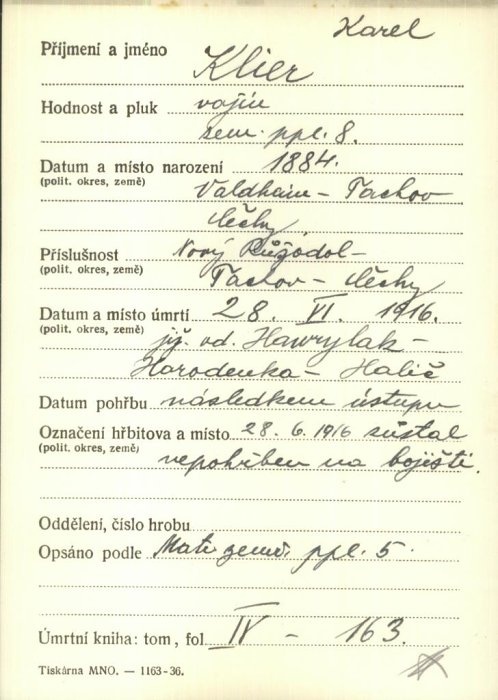 Karel
Příjmení a jméno Klier
Hodnost a pluk vojín
zem. ppl. 8.
Datum a místo narození 1884.
(polit. okres, země) Valdhaim - Tachov
Čechy
Příslušnost Nový Růžodol -
(polit. okres, země) Tachov - Čechy
Datum a místo úmrtí 28. VI. 1916.
(polit. okres, země) již. od. Hawrylak -
Horodenka - Halič
Datum pohřbu následkem ústupu
Označení hřbitova a místo 28. 6. 1916 zůstal
(polit. okres, země) nepohřben na bojišti.
Oddělení, číslo hrobu
Opsáno podle Matr. zem. ppl. 5.
Úmrtní kniha: tom, fol IV - 163.
Tiskárna MNO. — 1163-36.